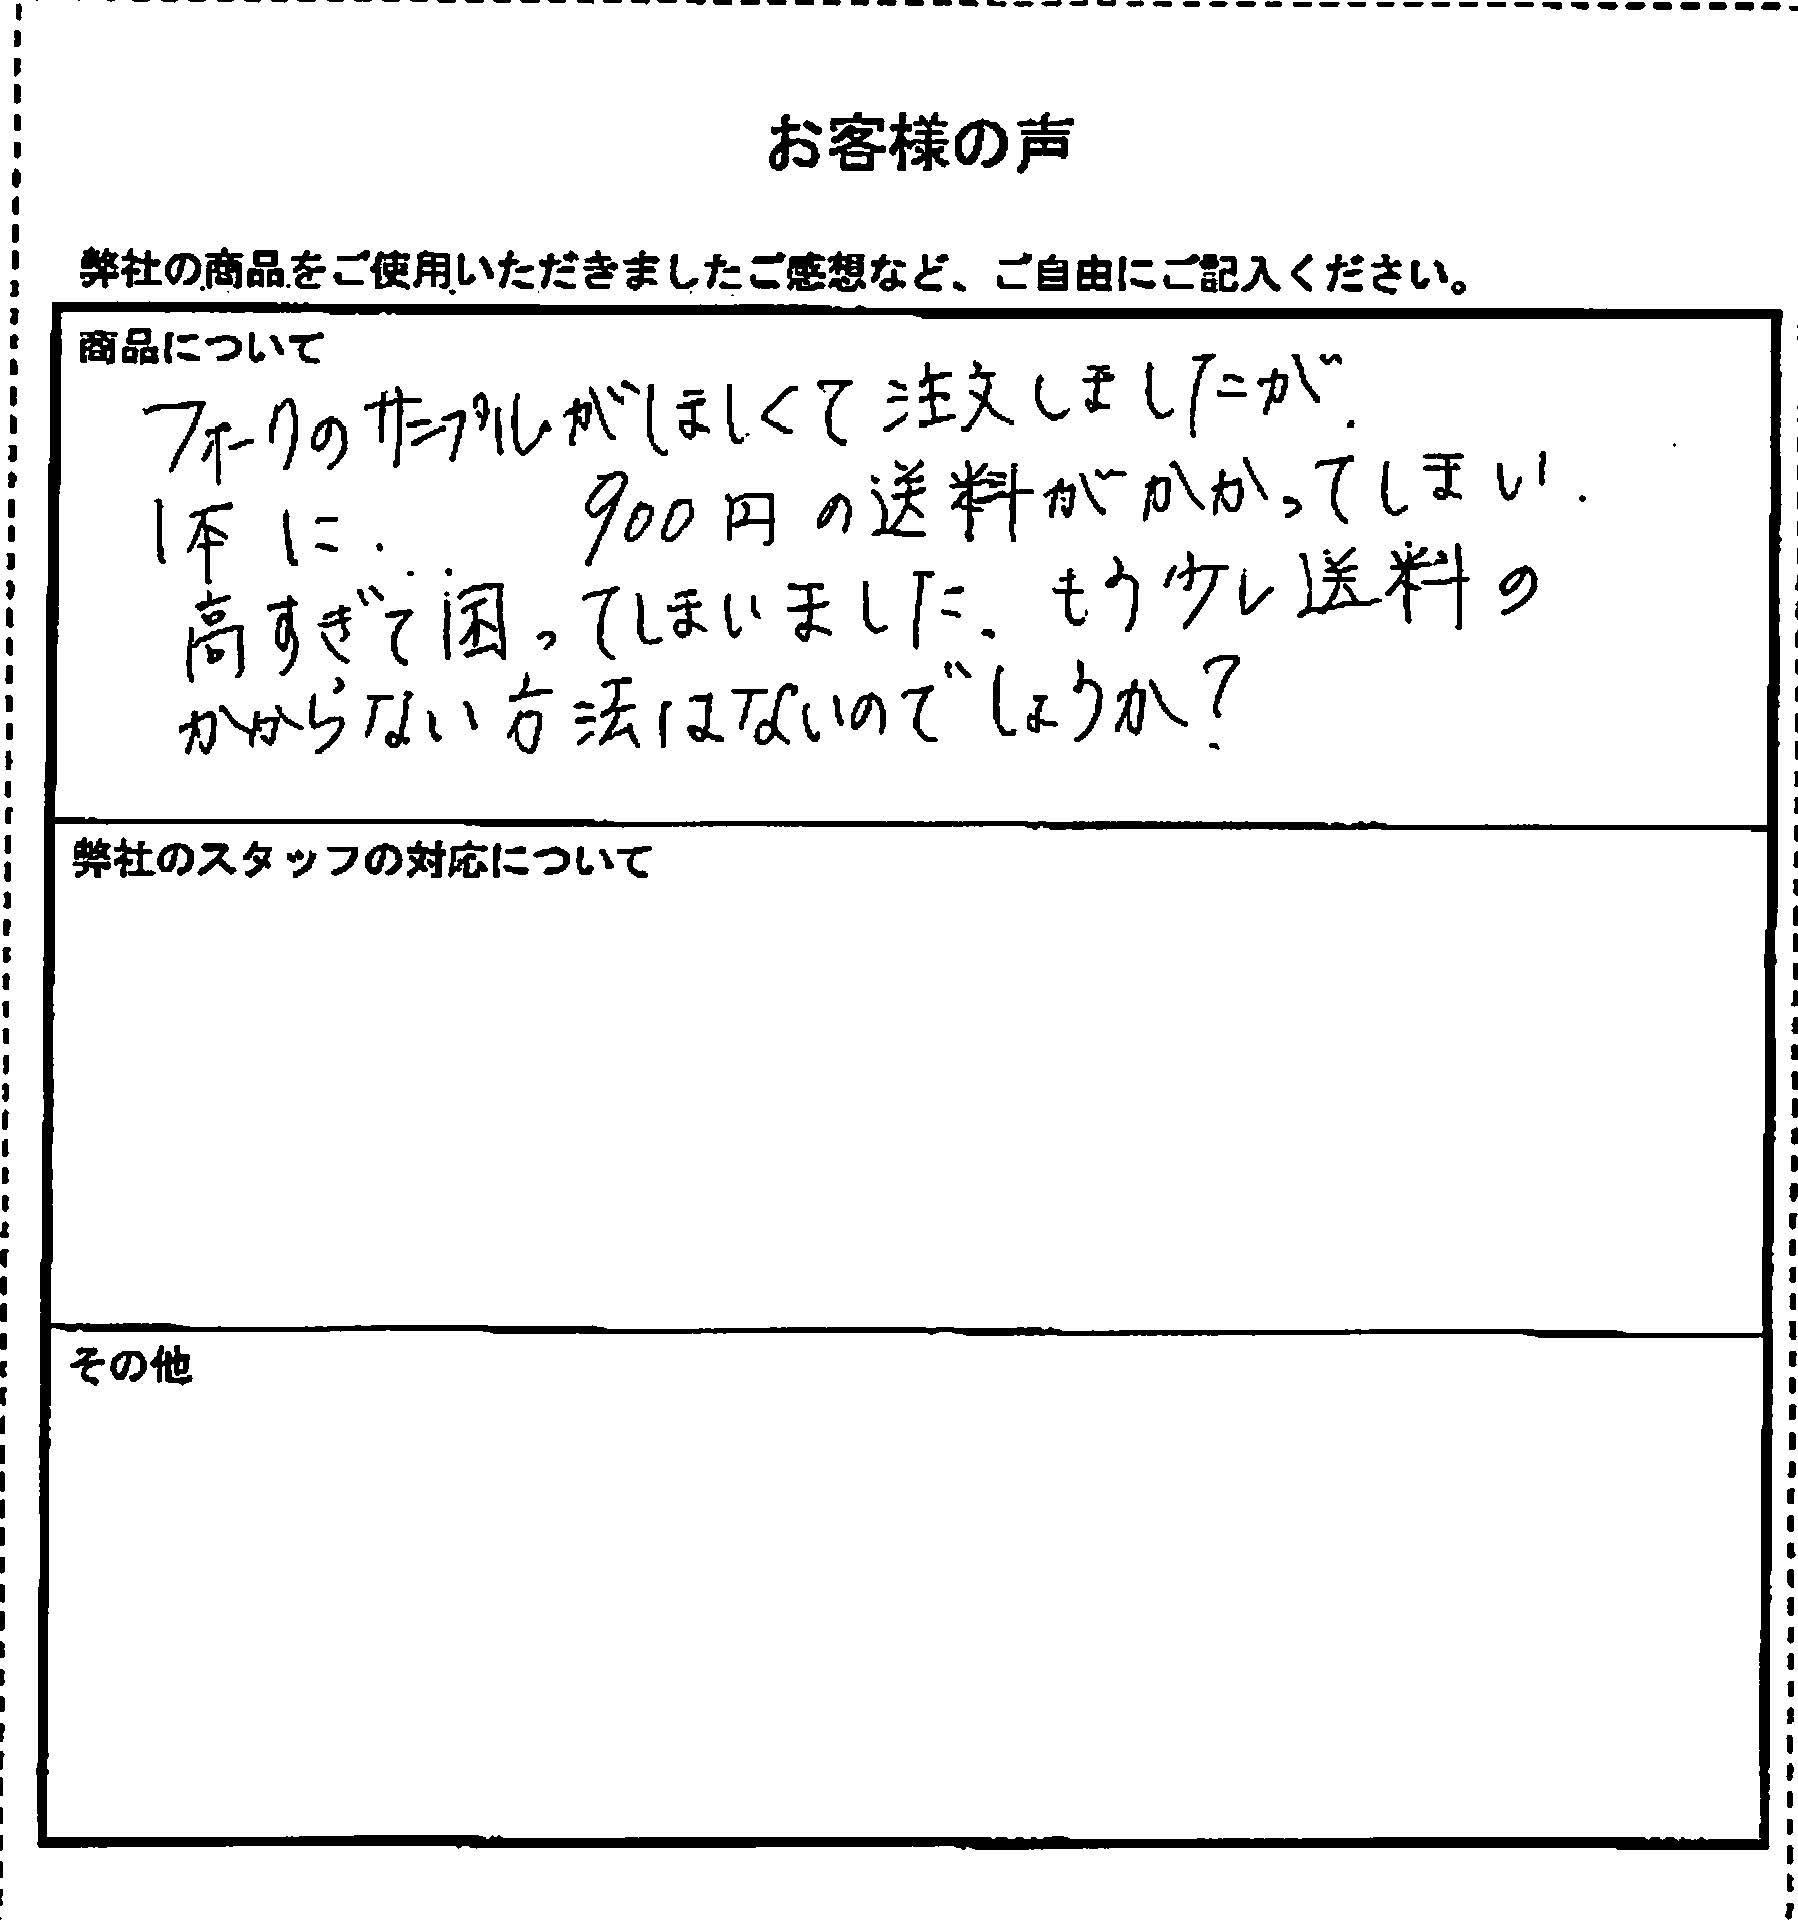 お客様の声
弊社の商品をご使用いただきましたご感想など、ご自由にご記入ください。
商品について
フォークのサンプルがほしくて注文しましたが、
1本に、900円の送料がかかってしまい、
高すぎて困ってしまいました、もう少し送料の
かからない方法はないのでしょうか?
弊社のスタッフの対応について
その他